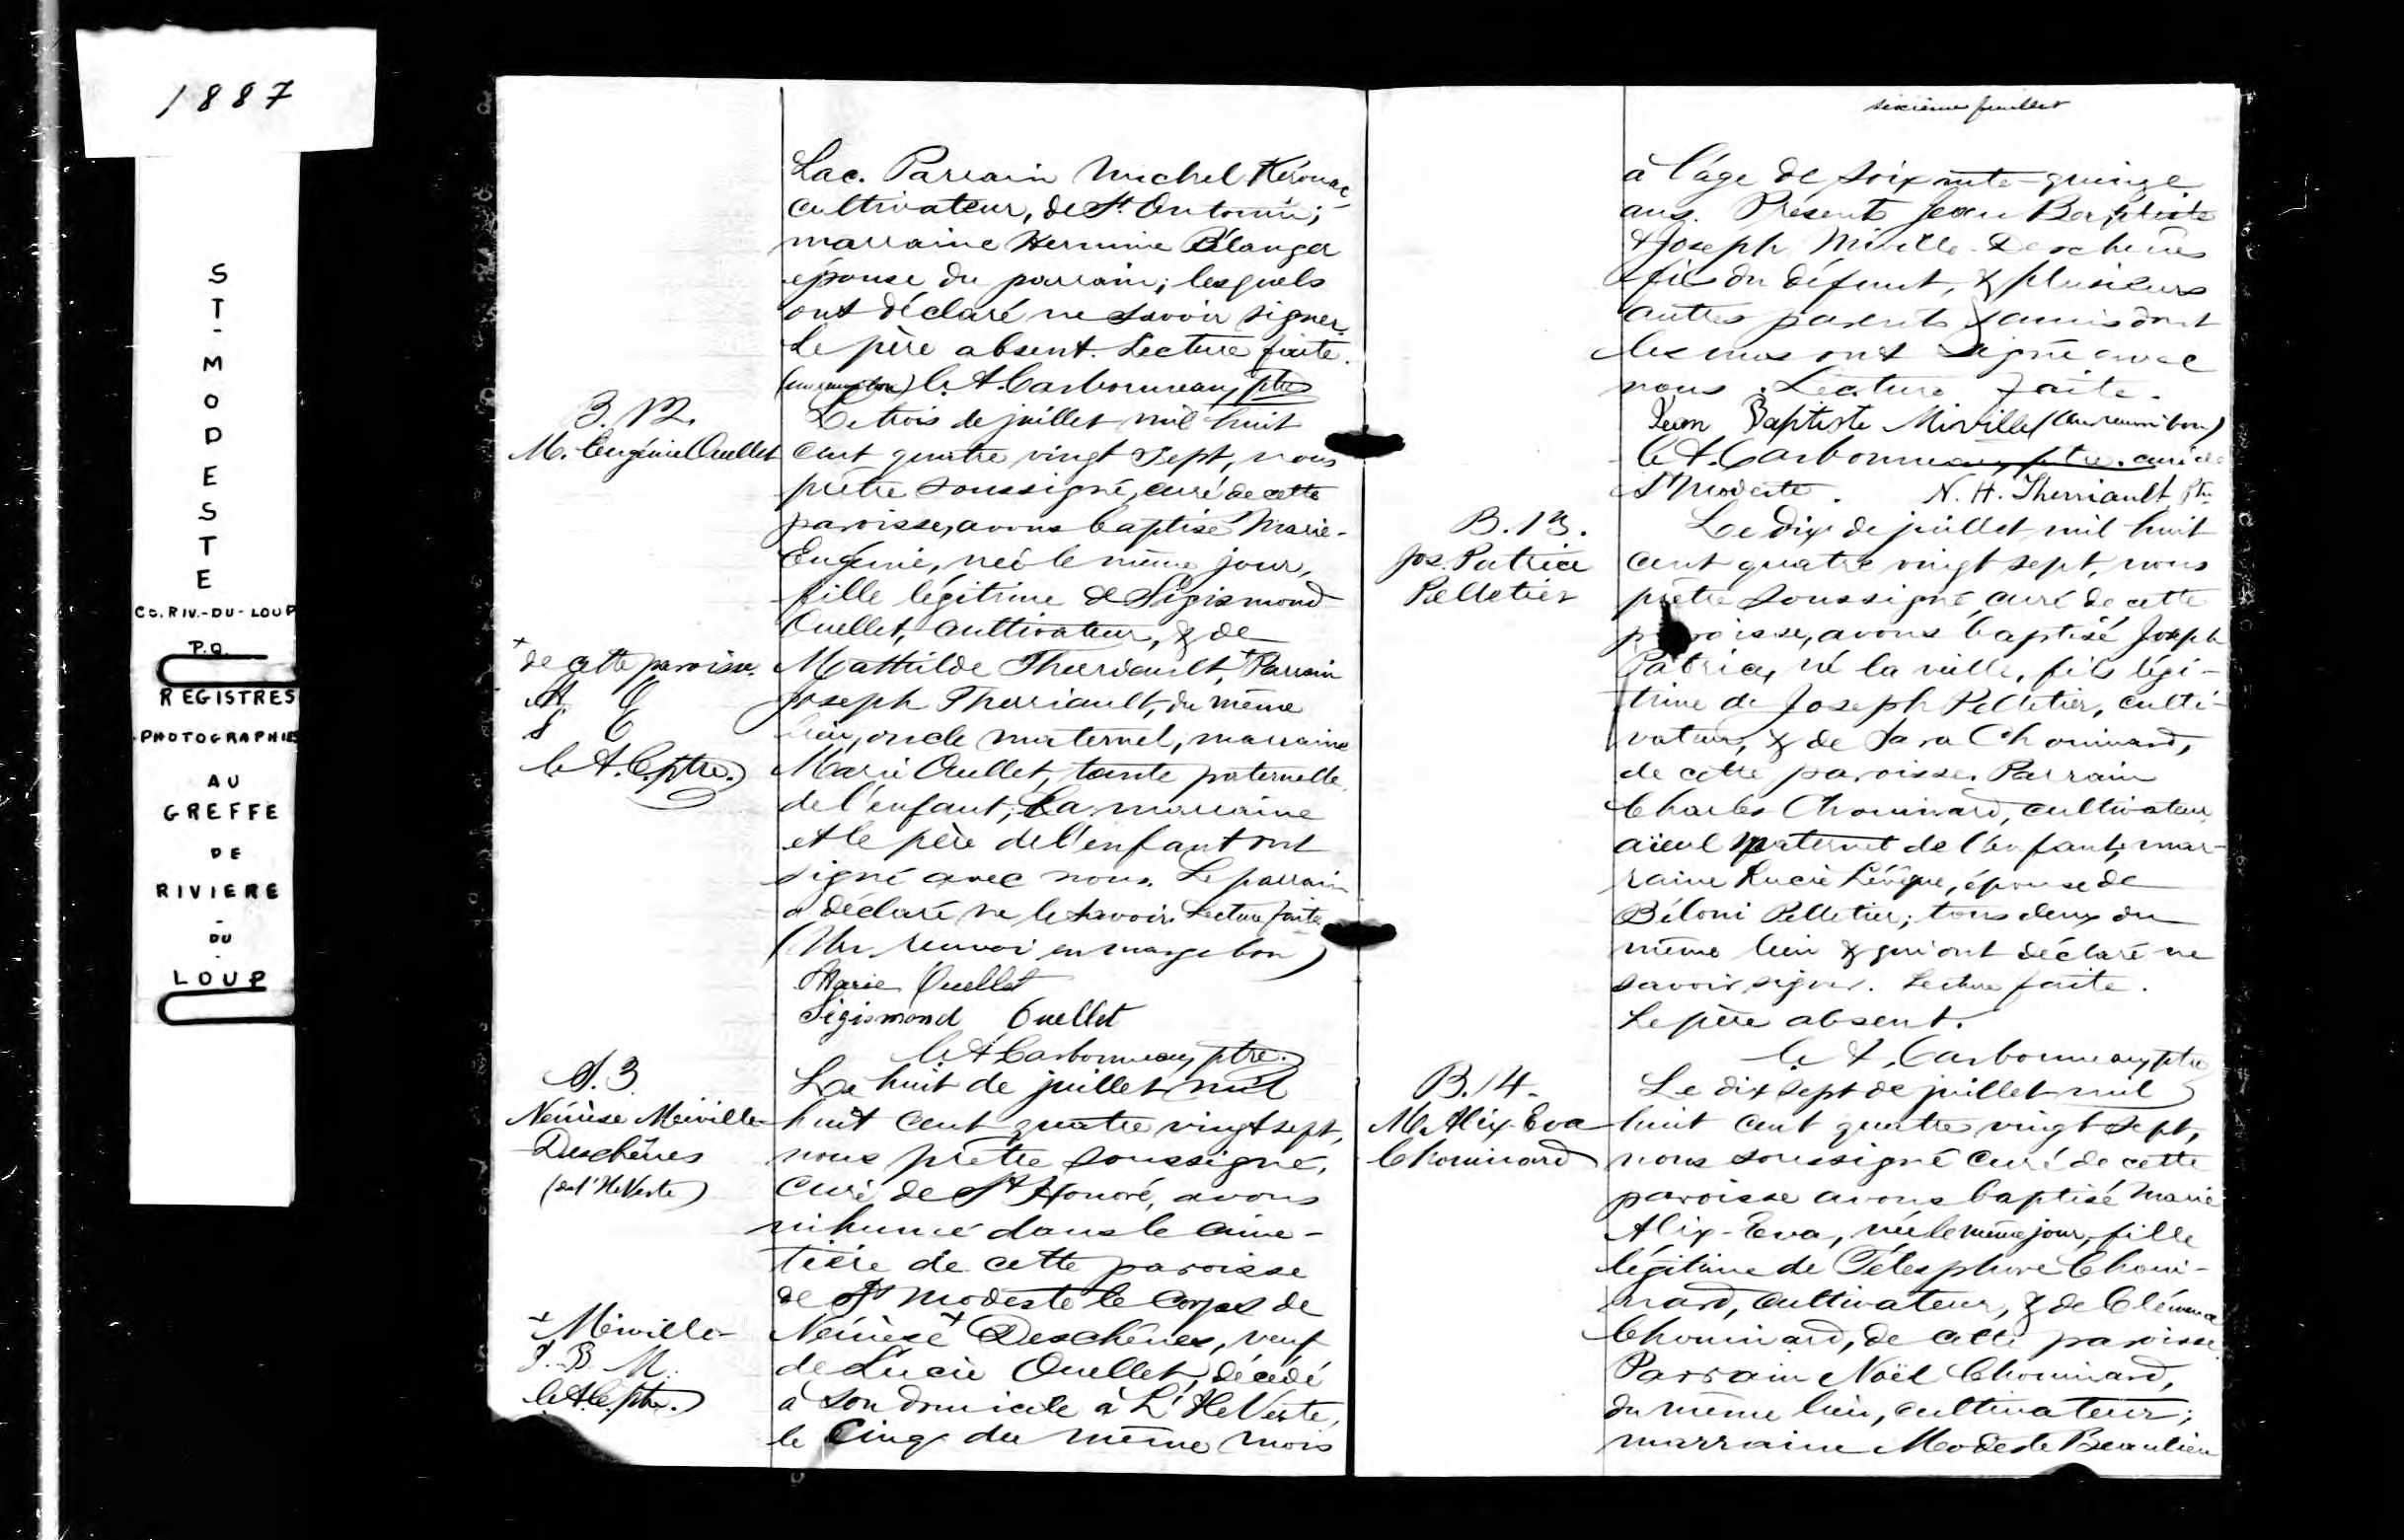 1887
ST-MODESTE
CO. RIV.-DU-LOUP
P.Q.
REGISTRES
PHOTOGRAPHIE
AU
GREFFE
DE
RIVIERE
-
DU
-
LOUP
Lac. Parrain Michel Kérouac
cultivateur, de St. Antonin;
marraine Hermine Bélanger
épouse du parrain; lesquels
ont déclaré ne savoir signer.
Le père absent. Lecture faite.
C. A. Carbonneau, ptre
B. 12.
M. Eugénie Ouellet
Le trois de juillet mil huit
cent quatre vingt sept, nous
prêtre soussigné, curé de cette
paroisse, avons baptisé Marie-
Eugénie, née le même jour,
fille légitime de Sigismond
Ouellet, cultivateur, & de
+ de cette paroisse.
M O
S O
C. A. C. ptre.
Mathilde Therriault,+ Parrain
Joseph Therriault, du même
lieu, oncle maternel, marraine
Marie Ouellet, tante paternelle
de l'enfant; La marraine
et le père de l'enfant ont
signé avec nous. Le parrain
a déclaré ne le savoir. Lecture faite
(Un renvoi en marge bon)
Marie Ouellet
Sigismond Ouellet
C. A. Carbonneau, ptre.
S. 3
Némèse Miville-
Deschênes
(de l'Ile Verte)
Le huit de juillet mil
huit cent quatre vingt sept,
nous prêtre soussigné,
Curé de St Honoré, avons
inhumé dans le cime-
tière de cette paroisse
de St Modeste le corps de
+ Miville-
J. B. M.
C. A. C. ptre.
Némèse + Deschênes, veuf
de Lucie Ouellet, décédé
à son domicile à L'Ile Verte,
le Cinq du même mois
sixième feuillet
à l'âge de soixante-quinze
ans. Présents Jean Baptiste
& Joseph Miville-Deschênes
fils du défunt, & plusieurs
autres parents & amis dont
les uns ont signé avec
nous. Lecture faite.
Jean Baptiste Miville (Un renvoi bon)
C. A. Carbonneau, ptre. curé de
St Modeste. N. H. Therriault Ptre
B. 13.
Jos. Patrice
Pelletier
Le dix de juillet mil huit
cent quatre vingt sept, nous
prêtre soussigné curé de cette
paroisse, avons baptisé Joseph
Patrice, né la veille, fils légi-
time de Joseph Pelletier, culti-
vateur, & de Sara Chouinard,
de cette paroisse. Parrain
Charles Chouinard, cultivateur
aïeul maternel de l'enfant, mar-
raine Lucie Lévêque, épouse de
Béloni Pelletier; tous deux du
même lieu & qui ont déclaré ne
savoir signer. Lecture faite.
Le père absent.
C. A. Carbonneau, ptre
B. 14.
M. Alix-Eva
Chouinard
Le dix sept de juillet mil
huit cent quatre vingt sept,
nous soussigné Curé de cette
paroisse avons baptisé Marie
Alix-Eva, née le même jour, fille
légitime de Télesphore Choui-
nard, cultivateur, & de Clémence
Chouinard, de cette paroisse
Parrain Noël Chouinard,
du même lieu, cultivateur;
marraine Modeste Beaulieu